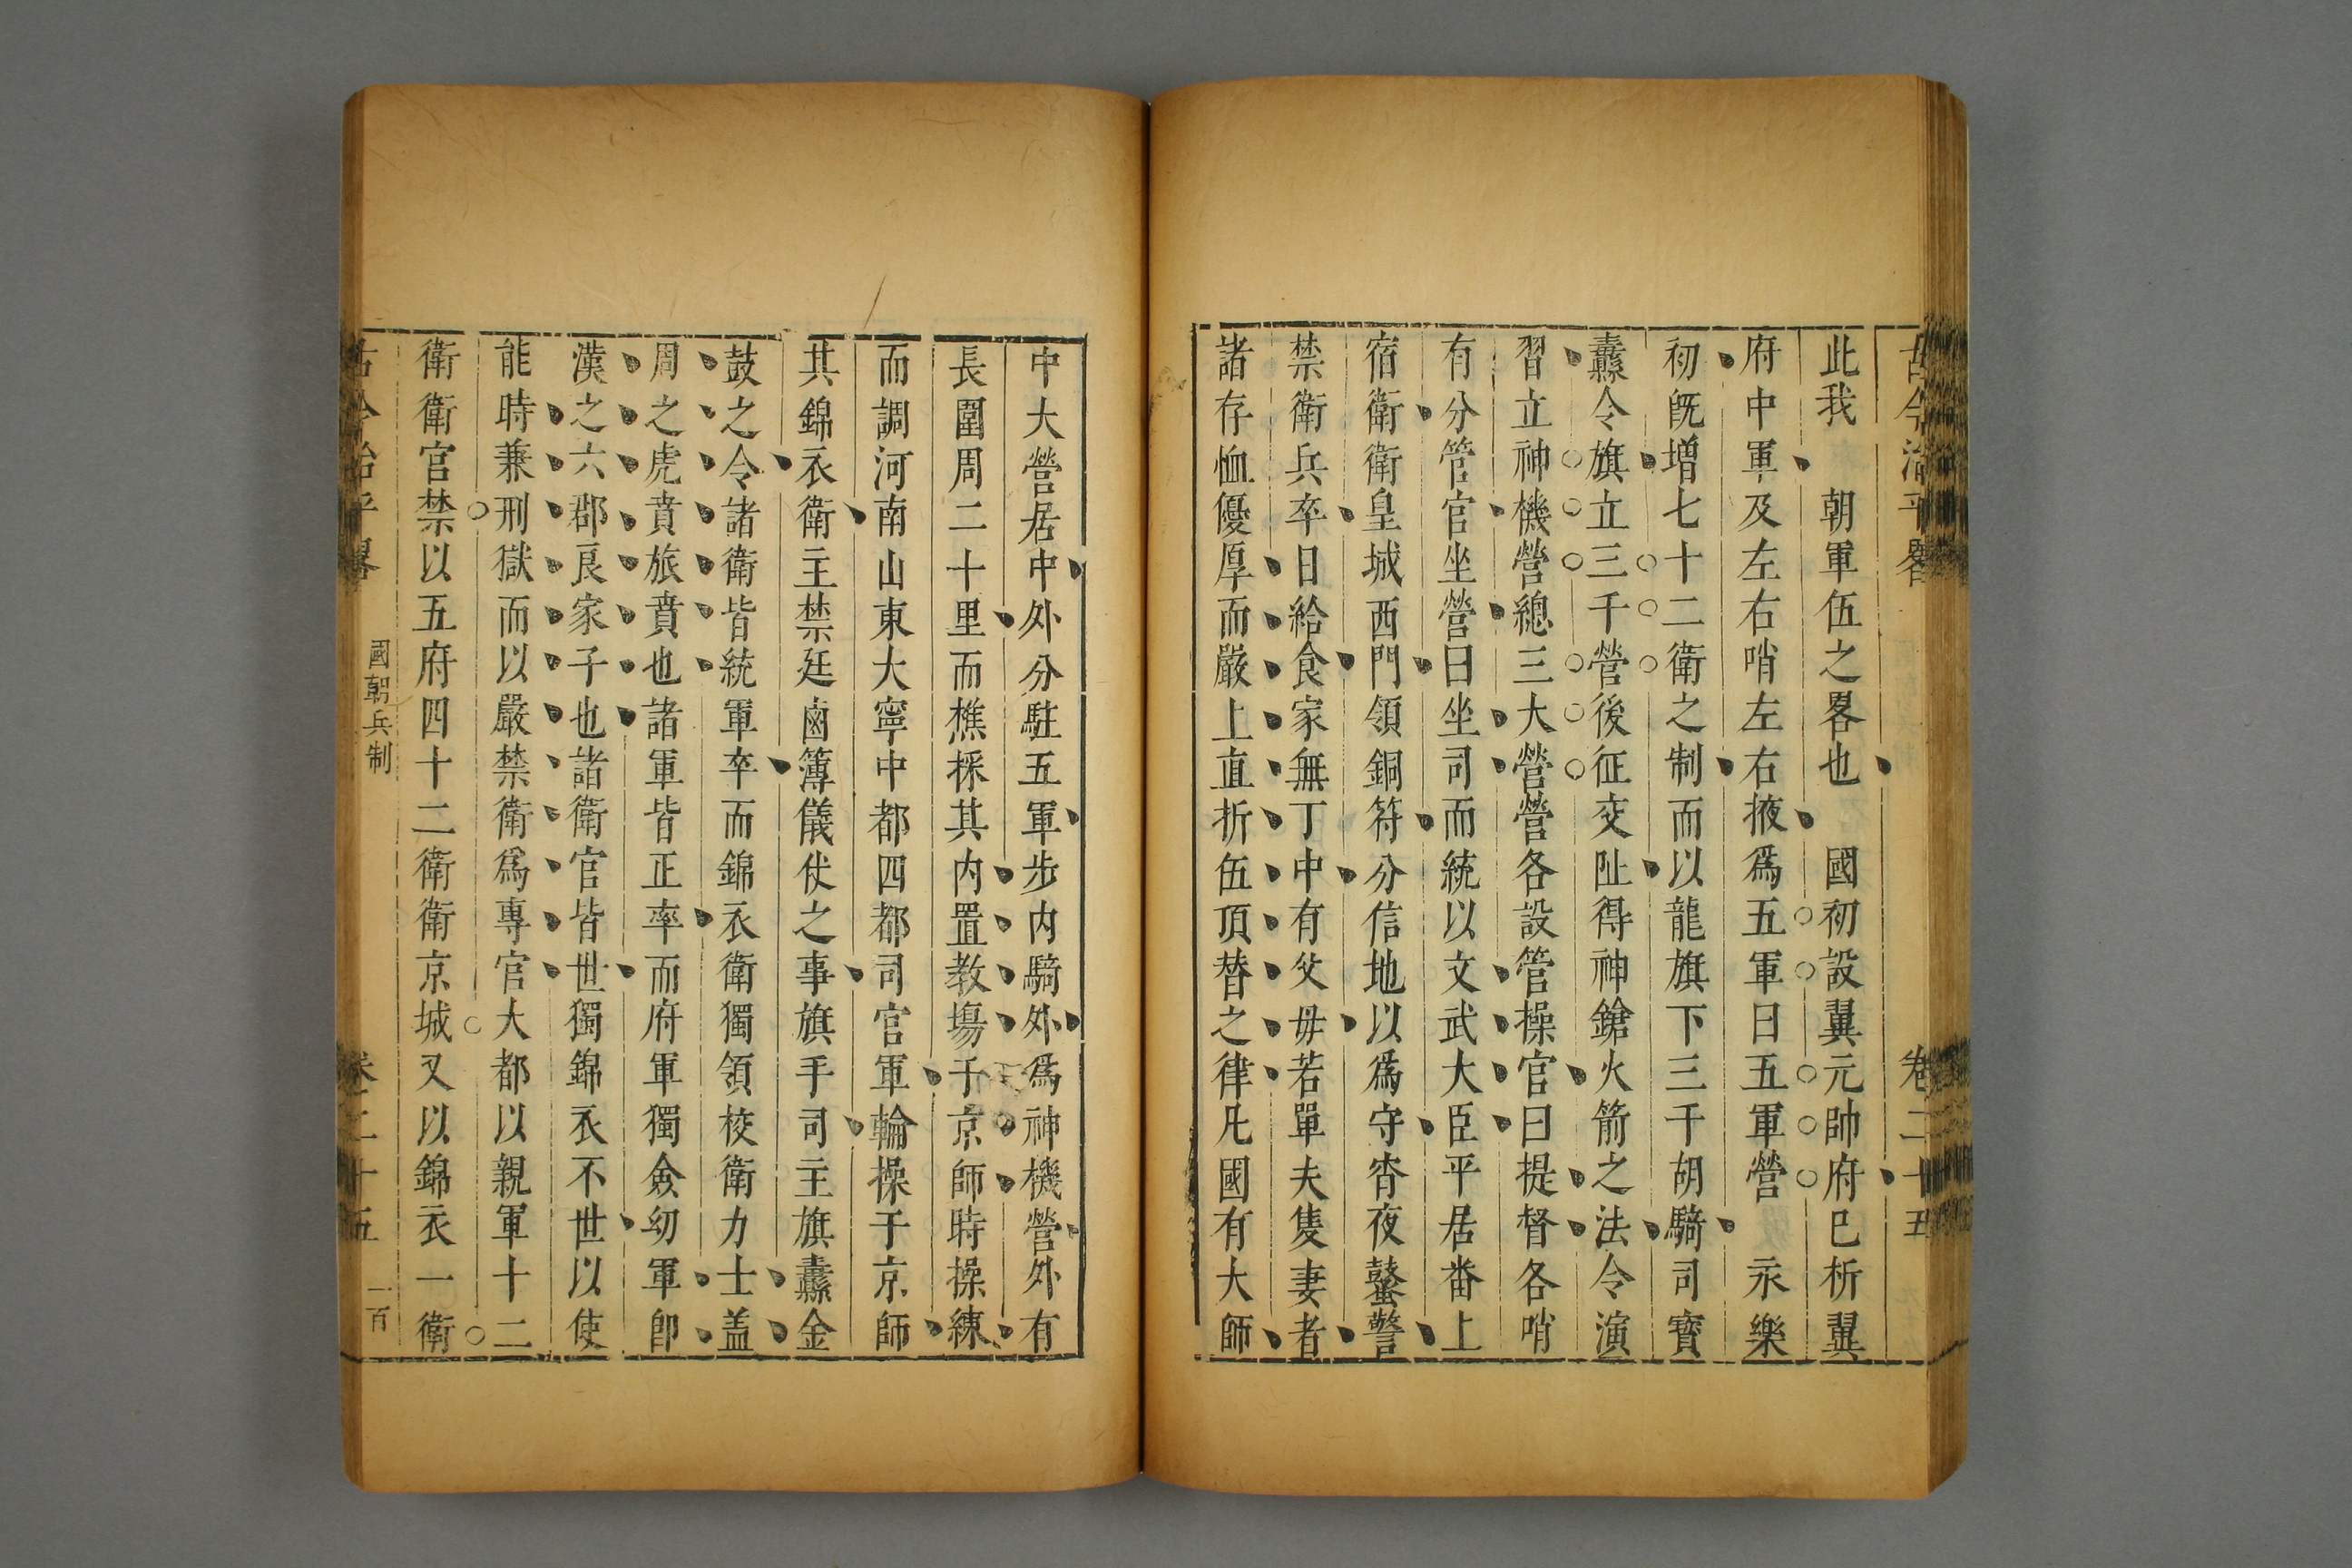 古今治平畧 卷二十五
此我 朝軍伍之畧也 國初設翼元帥府已析翼
府中軍及左右哨左右掖爲五軍曰五軍營 永樂
初旣增七十二衛之制而以龍旗下三千胡騎司寶
纛令旗立三千營後征交阯得神鎗火箭之法令演
習立神機營總三大營營各設管操官曰提督各哨
有分管官坐營曰坐司而統以文武大臣平居番上
宿衛衛皇城西門領銅符分信地以爲守宵夜鼜警
禁衛兵卒日給食家無丁中有父毋若單夫隻妻者
諸存恤優厚而嚴上直折伍頂替之律凡國有大師
中大營居中外分駐五軍步内騎外爲神機營外有
長圍周二十里而樵採其内置教塲于京師時操練
而調河南山東大寧中都四都司官軍輪操于京師
其錦衣衛主禁廷鹵簿儀仗之事旗手司主旗纛金
鼓之令諸衛皆統軍卒而錦衣衛獨領校衛力士盖
周之虎賁旅賁也諸軍皆正率而府軍獨僉幼軍卽
漢之六郡良家子也諸衛官皆世獨錦衣不世以使
能時兼刑獄而以嚴禁衛爲專官大都以親軍十二
衛衛官禁以五府四十二衛衛京城又以錦衣一衛
古今治平畧 國朝兵制 卷二十五 一百